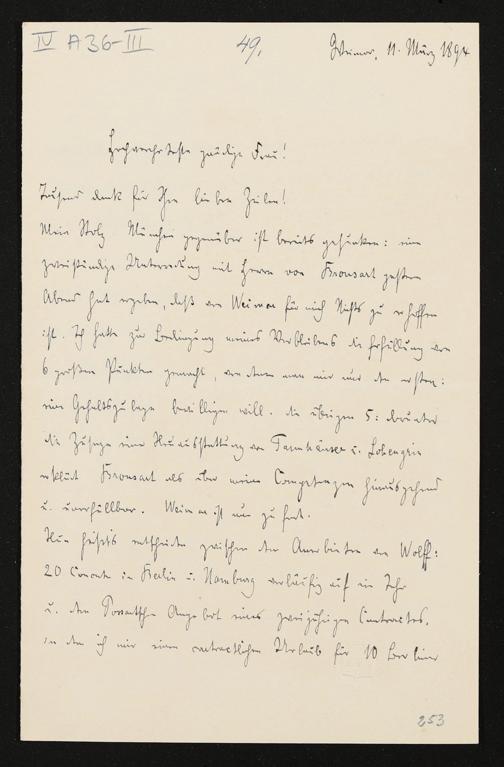 IV A 36-III
49.
Weimar, 11. März 1894
Hochverehrteste gnädige Frau!
Tausend Dank für Ihre lieben Zeilen!
Mein Stolz München gegenüber ist bereits gesunken: eine
zweistündige Unterredung mit Herrn von Bronsart gestern
Abend hat ergeben, daß von Weimar für mich Nichts zu erhoffen
ist. Ich hatte zur Bedingung meines Verbleibens die Erfüllung von
6 großen Punkten gemacht, von denen man mir nur den ersten:
eine Gehaltszulage bewilligen will. die übrigen 5: darunter
die Zusage einer Neuausstattung von Tannhäuser u. Lohengrin
erklärt Bronsart als über meine Competenzen hinausgehend
u. unerfüllbar. Weimar ist nun zu fort.
Nun heißt's entscheiden zwischen den Anerbieten von Wolff:
20 Concerte in Berlin u. Hamburg vorläufig auf ein Jahr
u. dem Possart'schen Angebot eines zweijährigen Contractes,
in dem ich mir einen contractlichen Urlaub für 10 Berliner
253